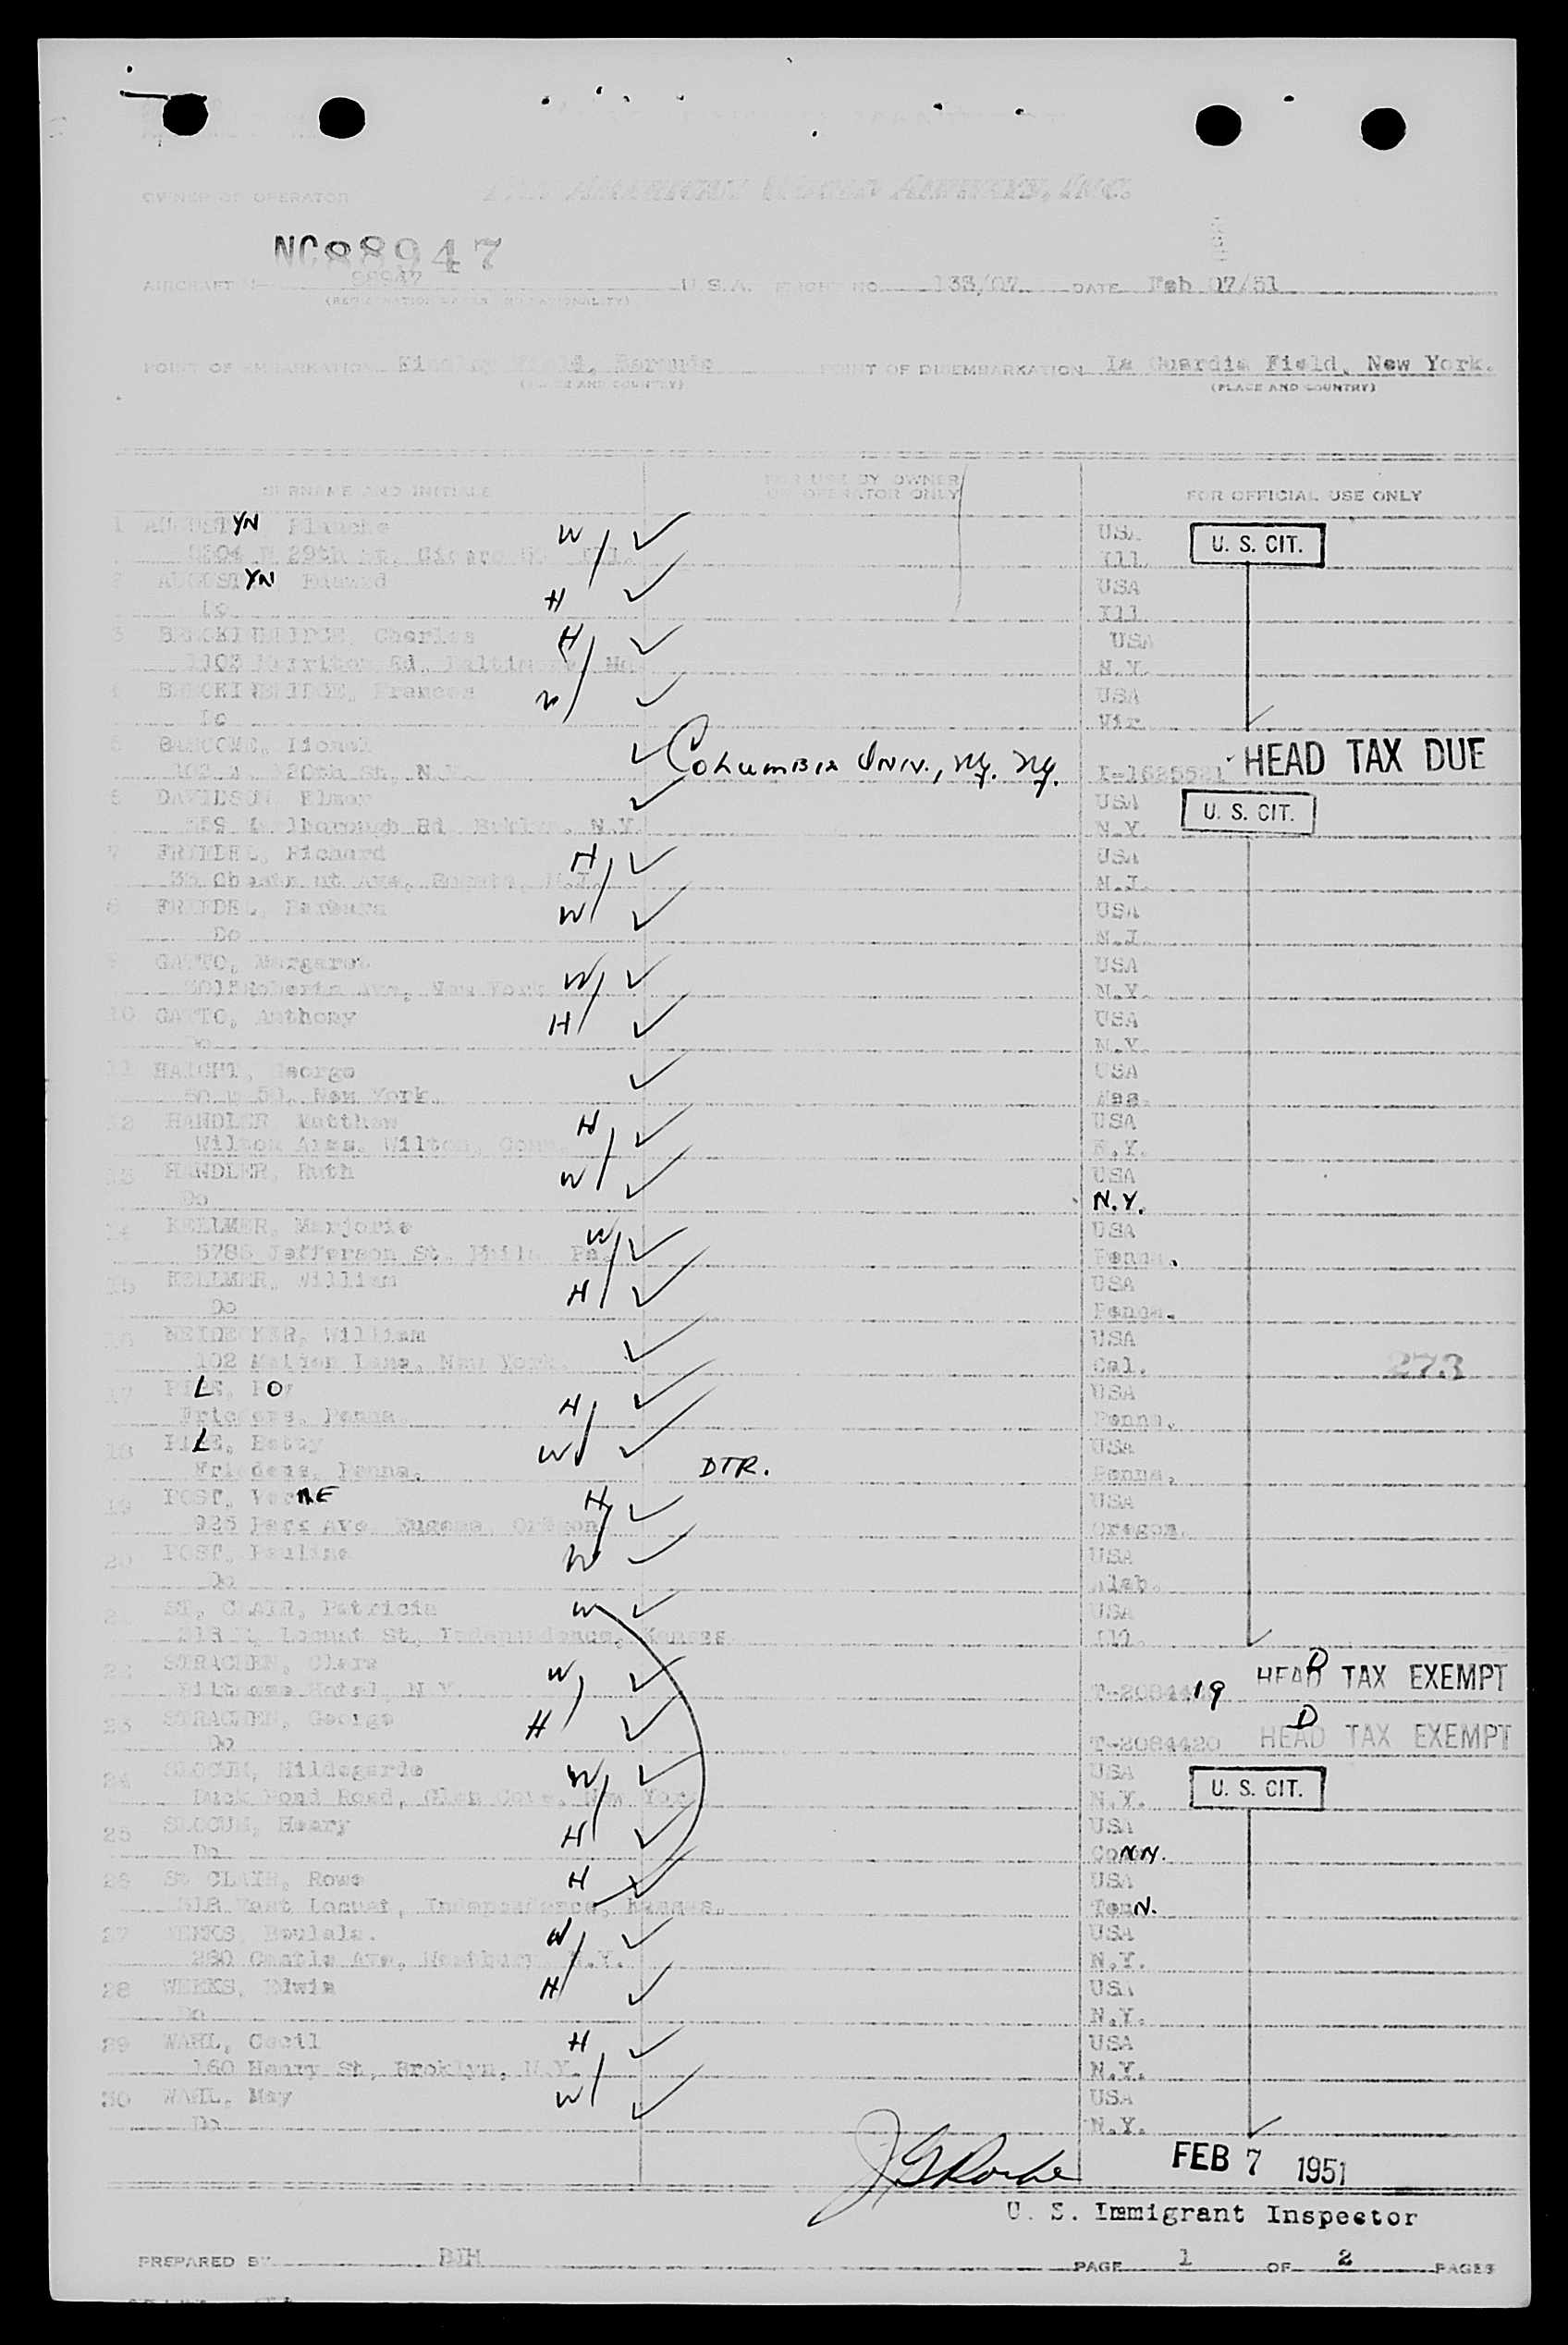 OWNER OR OPERATOR PAN AMERICAN WORLD AIRWAYS, INC.
NC88947
AIRCRAFT 88947 U.S.A. FLIGHT NO. 133/07 DATE Feb 07/51
(REGISTRATION MARKS NATIONALITY)
POINT OF EMBARKATION Kindley Field, Bermuda POINT OF DISEMBARKATION La Guardia Field, New York.
(PLACE AND COUNTRY) (PLACE AND COUNTRY)
SURNAME AND INITIALS FOR USE BY OWNER OR OPERATOR ONLY FOR OFFICIAL USE ONLY
1 AUGUSTYN Blanche W USA U. S. CIT.
29th St, Cicero Ill. Ill.
2 AUGUSTYN H USA
Do Ill
3 BRECKINRIDGE, Charles H USA
Rd. Baltimore, Md N.Y.
4 BRECKINRIDGE, Frances W USA
Do Vir
5 Lionel Columbia Univ., NY. NY. HEAD TAX DUE
120th St, N.Y. I-1625521
6 DAVIDSON, Elmer USA U. S. CIT.
Marlborough Rd Brklyn, N.Y. N.Y.
7 FRIEDEL, Richard H USA
35 Chestnut Ave, N.J. N.J.
8 FRIEDEL, Barbara W USA
Do N.J.
9 GATTO, Margaret W USA
Roberts Ave, New York N.Y.
10 GATTO, Anthony H USA
Do N.Y.
11 HAIGHT, George USA
New York. Mas.
12 HANDLER Matthew H USA
Wilton Acres, Wilton, Conn. N.Y.
13 HANDLER, Ruth W USA
Do N.Y.
14 KELLMER, Marjorie W USA
Jefferson St, Phila Pa. Penna.
15 KELLMER, William H USA
Do Penna.
16 NEIDECKER, William USA
102 Maiden Lane, New York. Cal. 273
17 PILE, Roy H USA
Friedens, Penna. Penna.
18 PILE, Betty W USA
Friedens, Penna. DTR. Penna.
19 POST, VerNE H USA
925 Park Ave Eugene, Oregon Oregon.
20 POST, Pauline W USA
Do Alab.
21 ST, CLAIR, Patricia W USA
Locust St, Independence, Kansas Ill.
22 STRACHEN, Clara W HEAD TAX EXEMPT
Biltmore Hotel N.Y. T-2084419
23 STRACHEN, George H D HEAD TAX EXEMPT
Do T-2084420
24 SLOCUM, Hildegarde W USA U. S. CIT.
Duck Pond Road, Glen Cove, New York N.Y.
25 SLOCUM, Henry H USA
Do CoNN.
26 St CLAIR, Rowe H USA
East Locust, Independence, Kansas. TenN.
27 WERKS, Beulala. W USA
Castle Ave, Westbury N.Y. N.Y.
28 WERKS, Edwin H USA
Do N.Y.
29 WAHL, Cecil H USA
160 Henry St, Broklyn, N.Y. N.Y.
30 WAHL, May W USA
Do N.Y.
FEB 7 1951
U. S. Immigrant Inspector
PREPARED BY PAGE 1 OF 2 PAGES